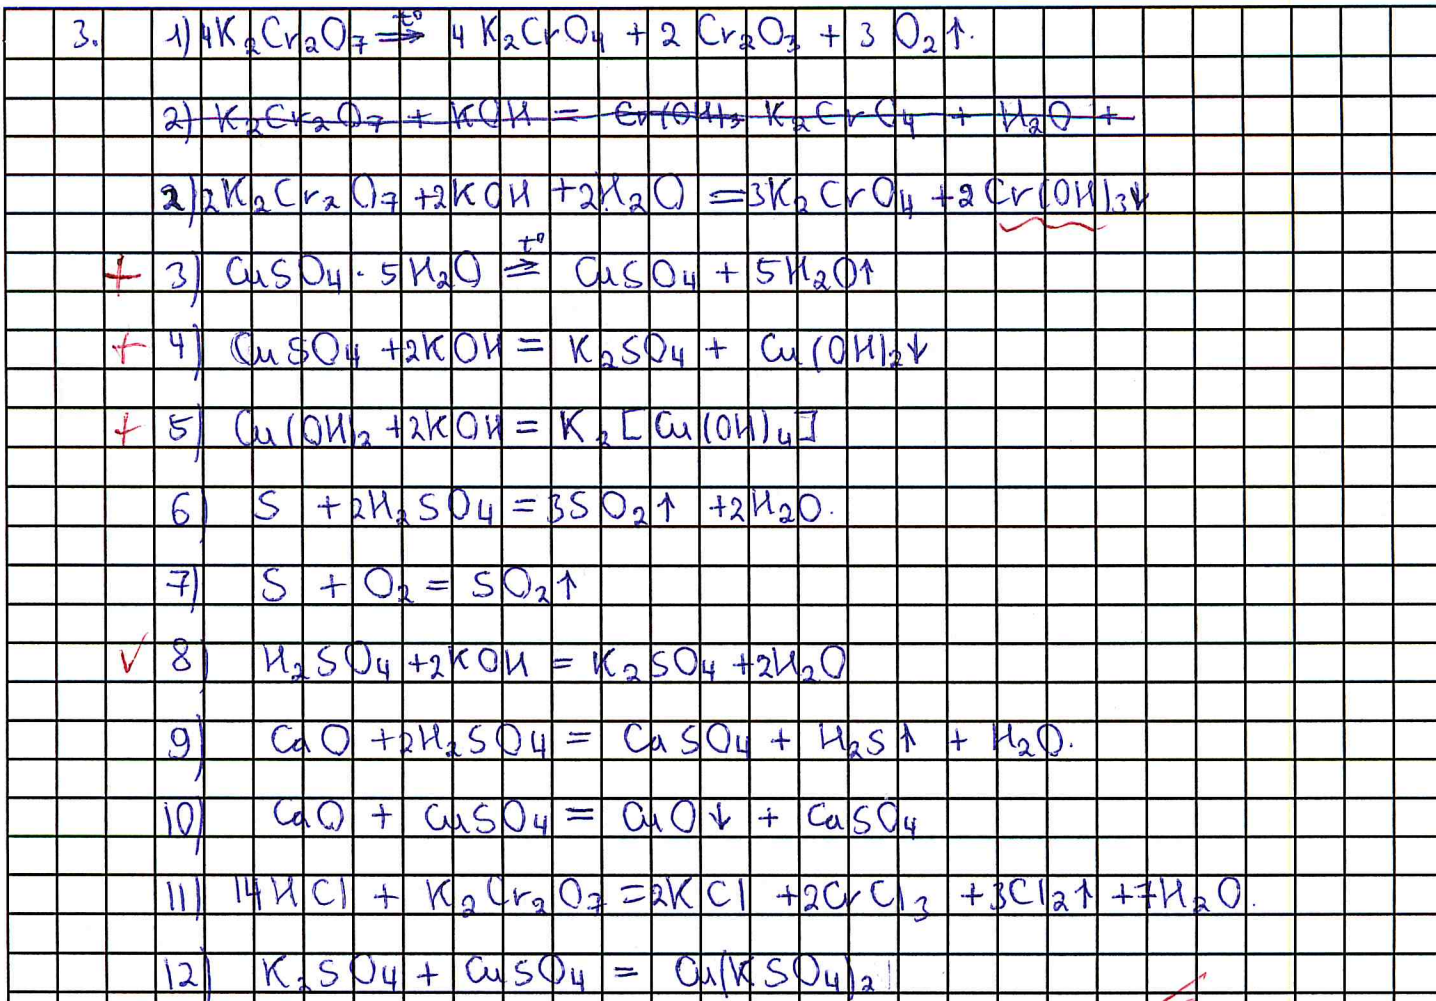 3. 1) 4K₂Cr₂O₇ =t°=> 4 K₂CrO₄ + 2 Cr₂O₃ + 3 O₂↑.
2) K₂Cr₂O₇ + KOH = Cr(OH)₃ K₂CrO₄ + H₂O +
2) 2K₂Cr₂O₇ +2KOH +2H₂O = 3K₂CrO₄ +2Cr(OH)₃↓
+ 3) CuSO₄ · 5H₂O =t°=> CuSO₄ + 5H₂O↑
+ 4) CuSO₄ +2KOH = K₂SO₄ + Cu(OH)₂↓
+ 5) Cu(OH)₂ +2KOH = K₂[Cu(OH)₄]
6) S +2H₂SO₄ = 3SO₂↑ +2H₂O.
7) S + O₂ = SO₂↑
✓ 8) H₂SO₄ +2KOH = K₂SO₄ +2H₂O
9) CaO +2H₂SO₄ = CaSO₄ + H₂S↑ + H₂O.
10) CaO + CuSO₄ = CuO↓ + CaSO₄
11) 14HCl + K₂Cr₂O₇ = 2KCl +2CrCl₃ +3Cl₂↑ +7H₂O.
12) K₂SO₄ + CuSO₄ = Cu(KSO₄)₂